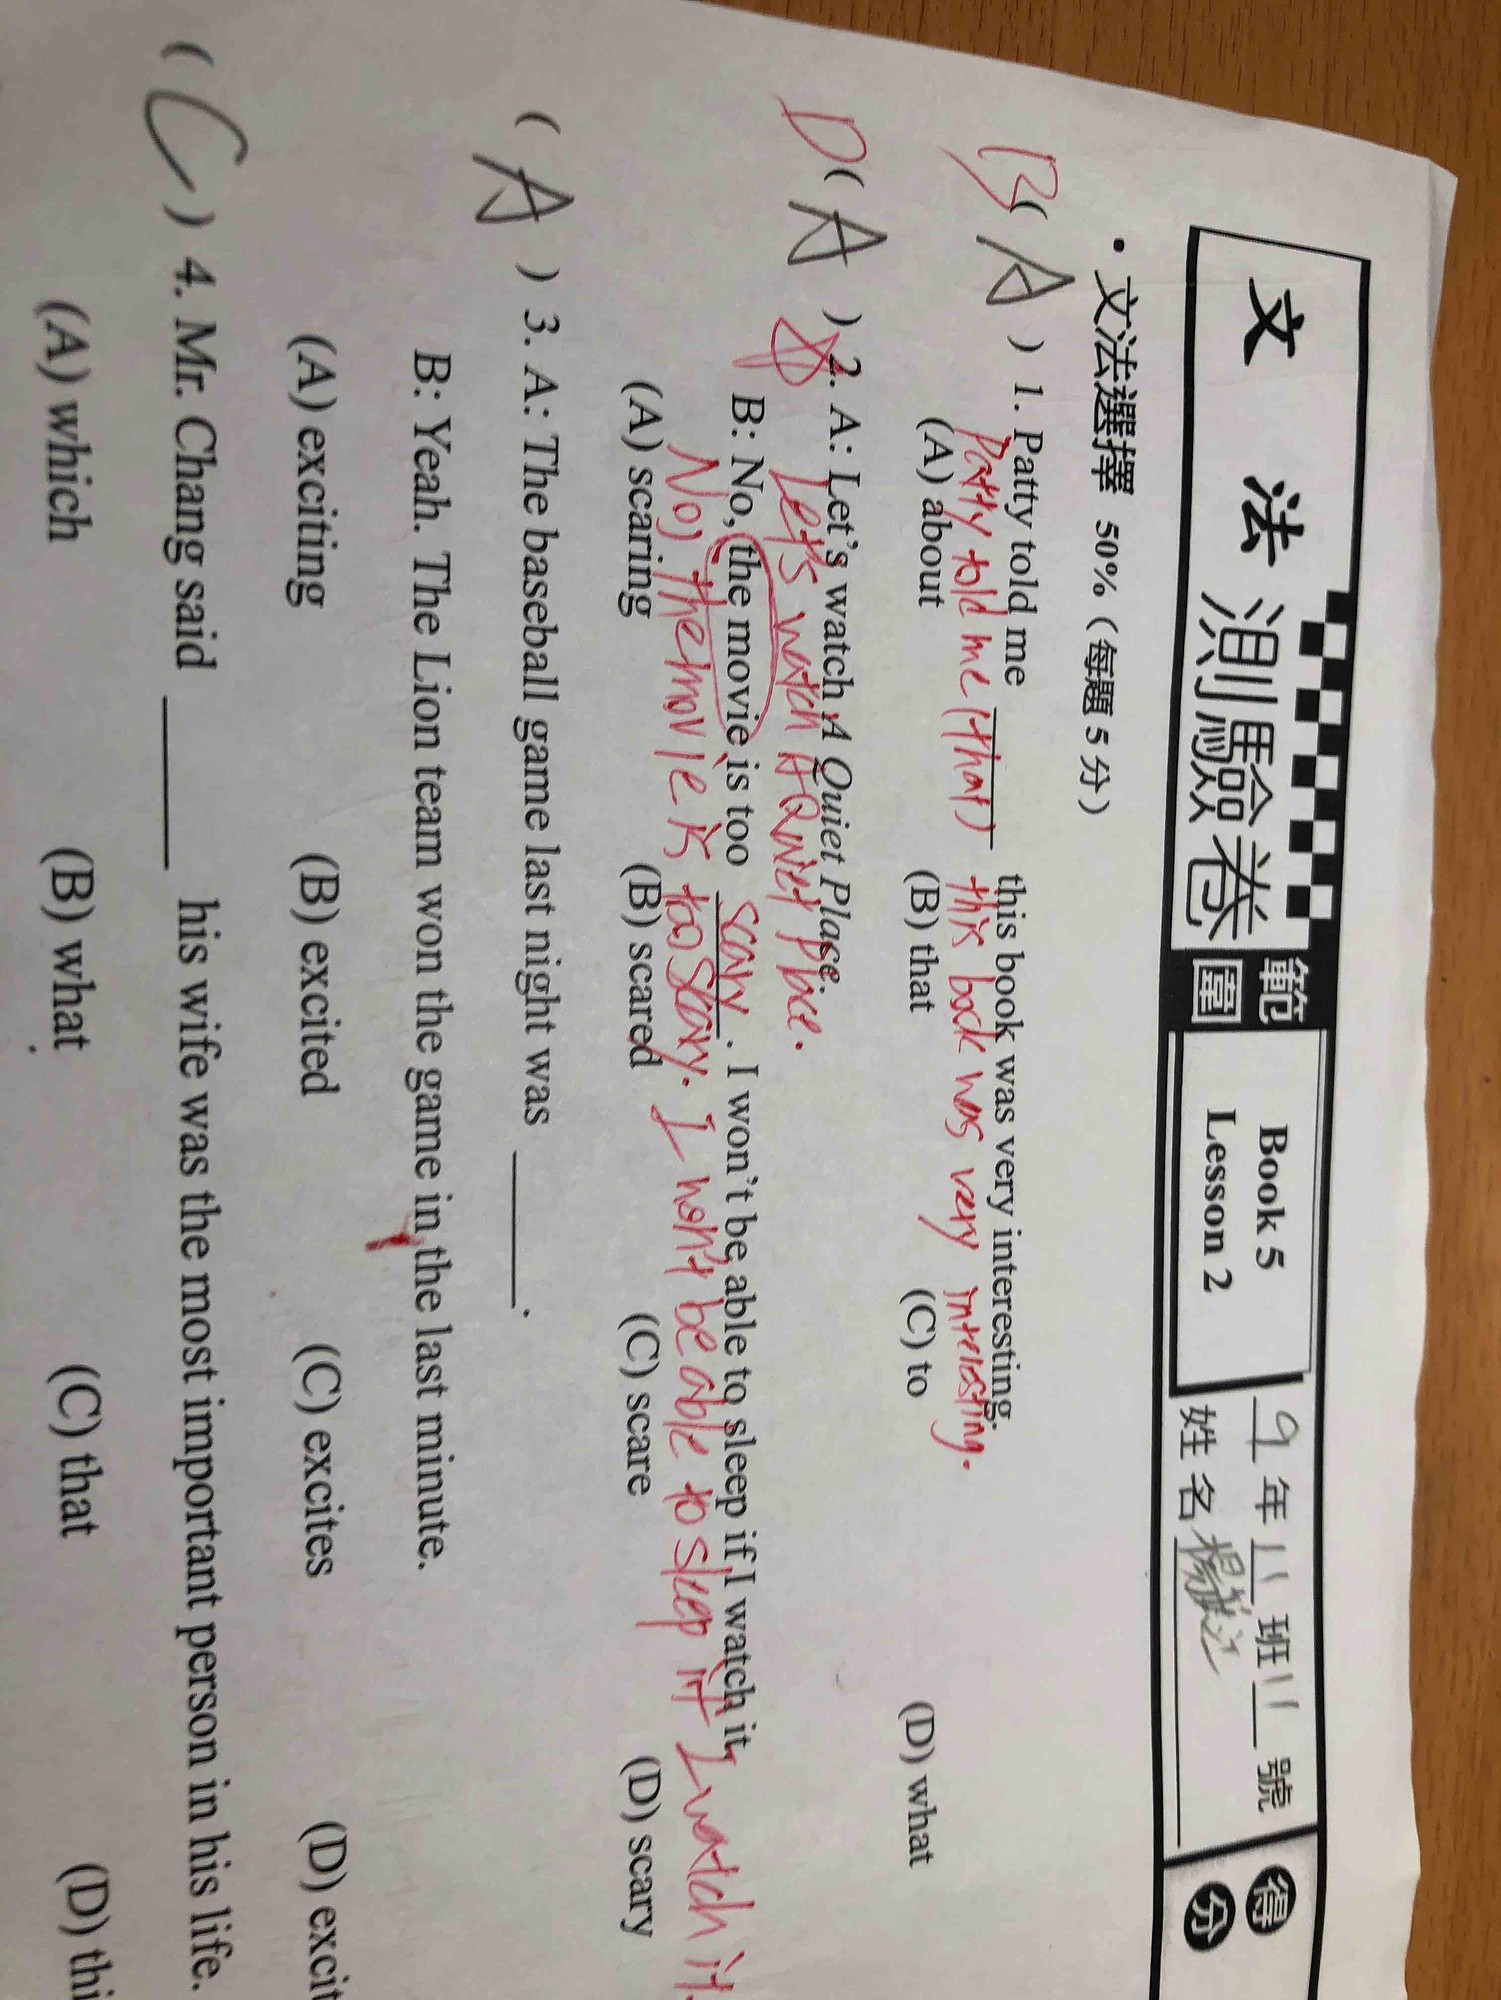 文法測驗卷 範圍 Book 5 Lesson 2 9年11班11號 姓名 楊 得分
• 文法選擇 50%(每題 5 分)
B( A ) 1. Patty told me ______ this book was very interesting.
Patty told me (that) this book was very interesting.
(A) about (B) that (C) to (D) what
D( A ) 2. A: Let's watch A Quiet Place.
Let's watch A Quiet place.
B: No, the movie is too scary. I won't be able to sleep if I watch it.
No, the movie is too scary. I won't be able to sleep if I watch it.
(A) scaring (B) scared (C) scare (D) scary
( A ) 3. A: The baseball game last night was ______.
B: Yeah. The Lion team won the game in the last minute.
(A) exciting (B) excited (C) excites (D) excit
( C ) 4. Mr. Chang said ______ his wife was the most important person in his life.
(A) which (B) what (C) that (D) thi